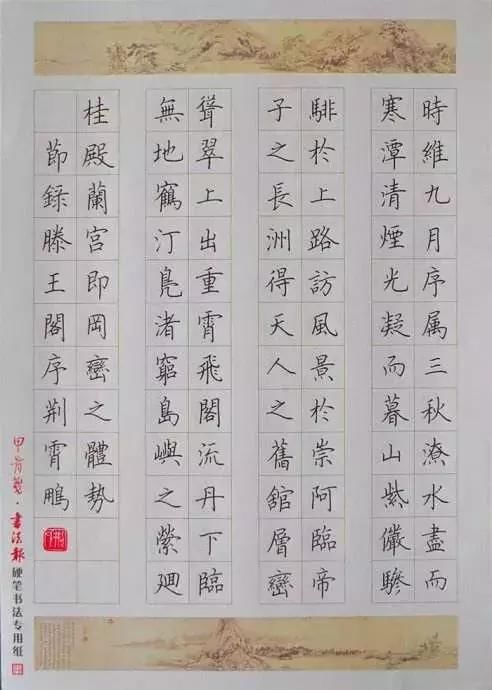 時維九月序属三秋潦水盡而
寒潭清煙光凝而暮山紫儼驂
騑於上路訪風景於崇阿臨帝
子之長洲得天人之舊舘層巒
聳翠上出重霄飛閣流丹下臨
無地鶴汀鳧渚窮島嶼之縈廻
桂殿蘭宮即岡巒之體勢
節録滕王閣序荆霄鵬
書法報
硬笔书法专用纸